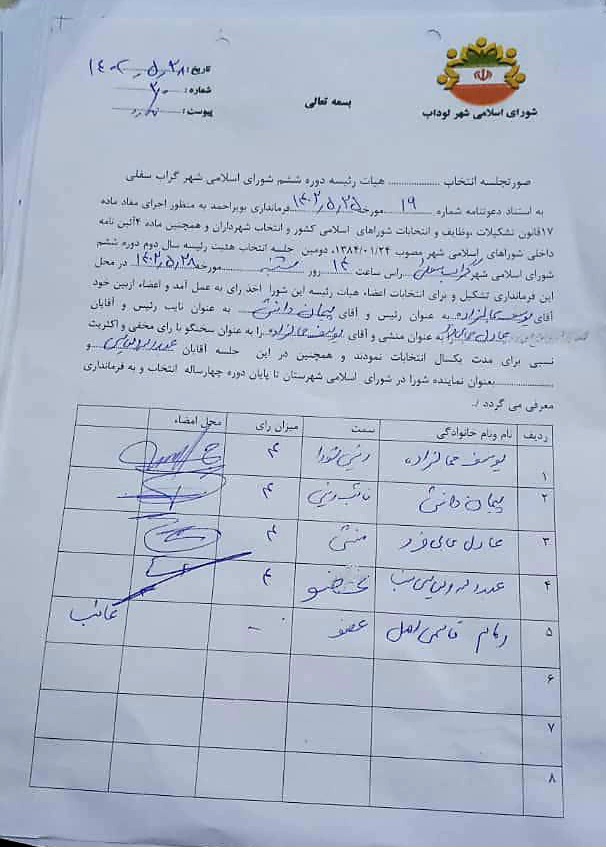 شورای اسلامی شهر لوداب
بسمه تعالی
تاریخ: ۱۴۰۲٫۵٫۲۸
شماره: ۳۰
پیوست:
صورتجلسه انتخاب ................... هیات رئیسه دوره ششم شورای اسلامی شهر گراب سفلی
به استناد دعوتنامه شماره ۱۹ مورخه ۱۴۰۲٫۵٫۲۵ فرمانداری بویراحمد به منظور اجرای مفاد ماده
۱۷قانون تشکیلات ،وظایف و انتخابات شوراهای اسلامی کشور و انتخاب شهرداران و همچنین ماده ۴آئین نامه
داخلی شوراهای اسلامی شهر مصوب ۱۳۸۴/۰۱/۲۴، دومین جلسه انتخاب هیئت رئیسه سال دوم دوره ششم
شورای اسلامی شهر گراب سفلی راس ساعت ۱۲ روز شنبه مورخه ۱۴۰۲٫۵٫۲۸ در محل
این فرمانداری تشکیل و برای انتخابات اعضاء هیات رئیسه این شورا اخذ رای به عمل آمد و اعضاء ازبین خود
آقای یوسف جمالزاده به عنوان رئیس و آقای پیمان دانش به عنوان نایب رئیس و آقایان
به عنوان منشی و آقای یوسف جمالزاده را به عنوان سخنگو با رای مخفی و اکثریت
نسبی برای مدت یکسال انتخابات نمودند و همچنین در این جلسه آقایان و
....................بعنوان نماینده شورا در شورای اسلامی شهرستان تا پایان دوره چهارساله انتخاب و به فرمانداری
معرفی می گردد ./
ردیف نام ونام خانوادگی سمت میزان رای محل امضاء
۱ یوسف جمالزاده رئیس شورا ۴
۲ پیمان دانش نائب رئیس ۴
۳ عادل عالی فرد منشی ۴
۴ سخنگو ۴
۵ قاسمی اصل عضو - غائب
۶
۷
۸